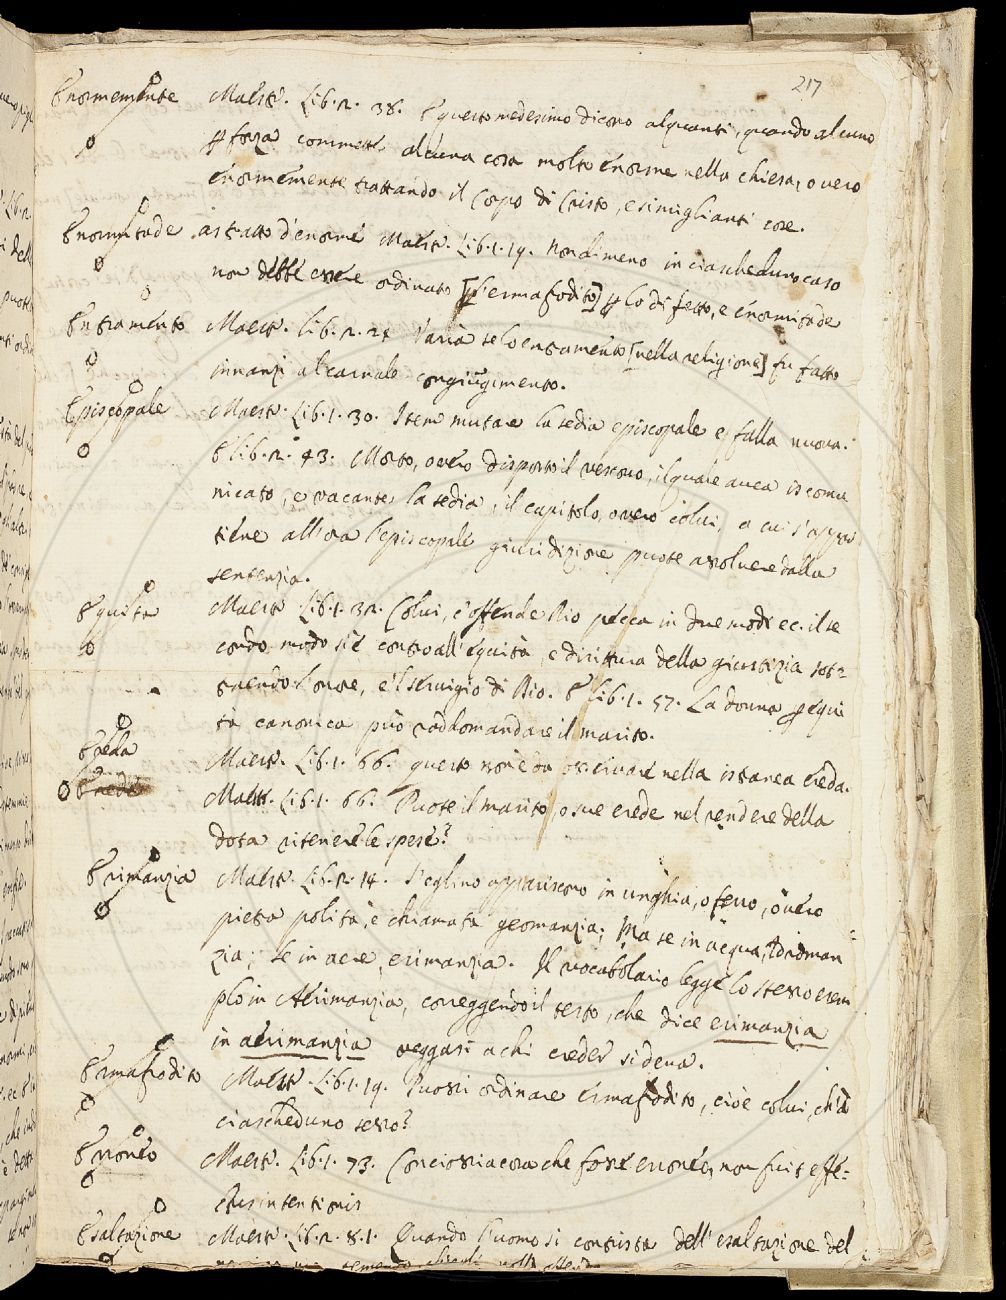 217
Enormemente Maestr. Lib. 2. 38. E questo medesimo dicono alquanti, quando alcuno
ꝑ forza commette alcuna cosa molto enorme nella chiesa, o vero
enormemente trattando il Corpo di Cristo, e simiglianti cose.
Enormitade astratto d'enorme Maestr. Lib. 1. 19. Nondimeno in ciascheduno caso
non debbe essere ordinato [l'ermafrodito] ꝑ lo difetto, e enormitade
Entramento Maestr. Lib. 2. 24 Varia se lo entramento [nella religione] fu fatto
innanzi al carnale congiugimento.
Episcopale Maestr. Lib. 1. 30. Item mutare la sedia episcopale e falla nuova.
E lib. 2. 43. Morto, o vero disposto il vescovo, il quale avea iscomu
nicato, e vacante la sedia, il capitolo, o vero colui, a cui s'appar
tiene allora l'episcopale giuridizione puote assolvere dalla
sentenzia.
Equità Maestr. Lib. 1. 32. Colui, c'offende Dio pecca in due modi ec. il se
condo modo si è contro all'equità, e dirittura della giustizia sot-
traendo l'onore, e 'l servigio di Dio. E Lib. 1. 57. La donna ꝑ equi
tà canonica può raddomandare il marito.
Ereda Maestr. Lib. 1. 66. questo non è da osservare nella istranea ereda.
Erede Maestr. Lib. 1. 66. Puote il marito, o sue erede nel rendere della
dota ritenere le spese?
Erimanzia Maestr. Lib. 2. 14. S'eglino apparissero in unghia, o ferro, o vero
pietra polita, è chiamata geomanzia; Ma se in acqua, Idroman
zia; se in aere, erimanzia. Il vocabolario legge lo stesso esem
plo in Aerimanzia, correggendo il testo, che dice erimanzia
in aerimanzia veggasi a chi creder si deva.
Ermafrodito Maestr. Lib. 1. 19. Puossi ordinare ermafrodito, cioè colui, ch'à
ciascheduno sesso?
Erroneo Maestr. Lib. 1. 73. Conciossiacosa che forse erronea, non fuit effe-
ctus intentionis
Esaltazione Maestr. Lib. 2. 8. 1. Quando l'uomo si contrista dell'esaltazione del